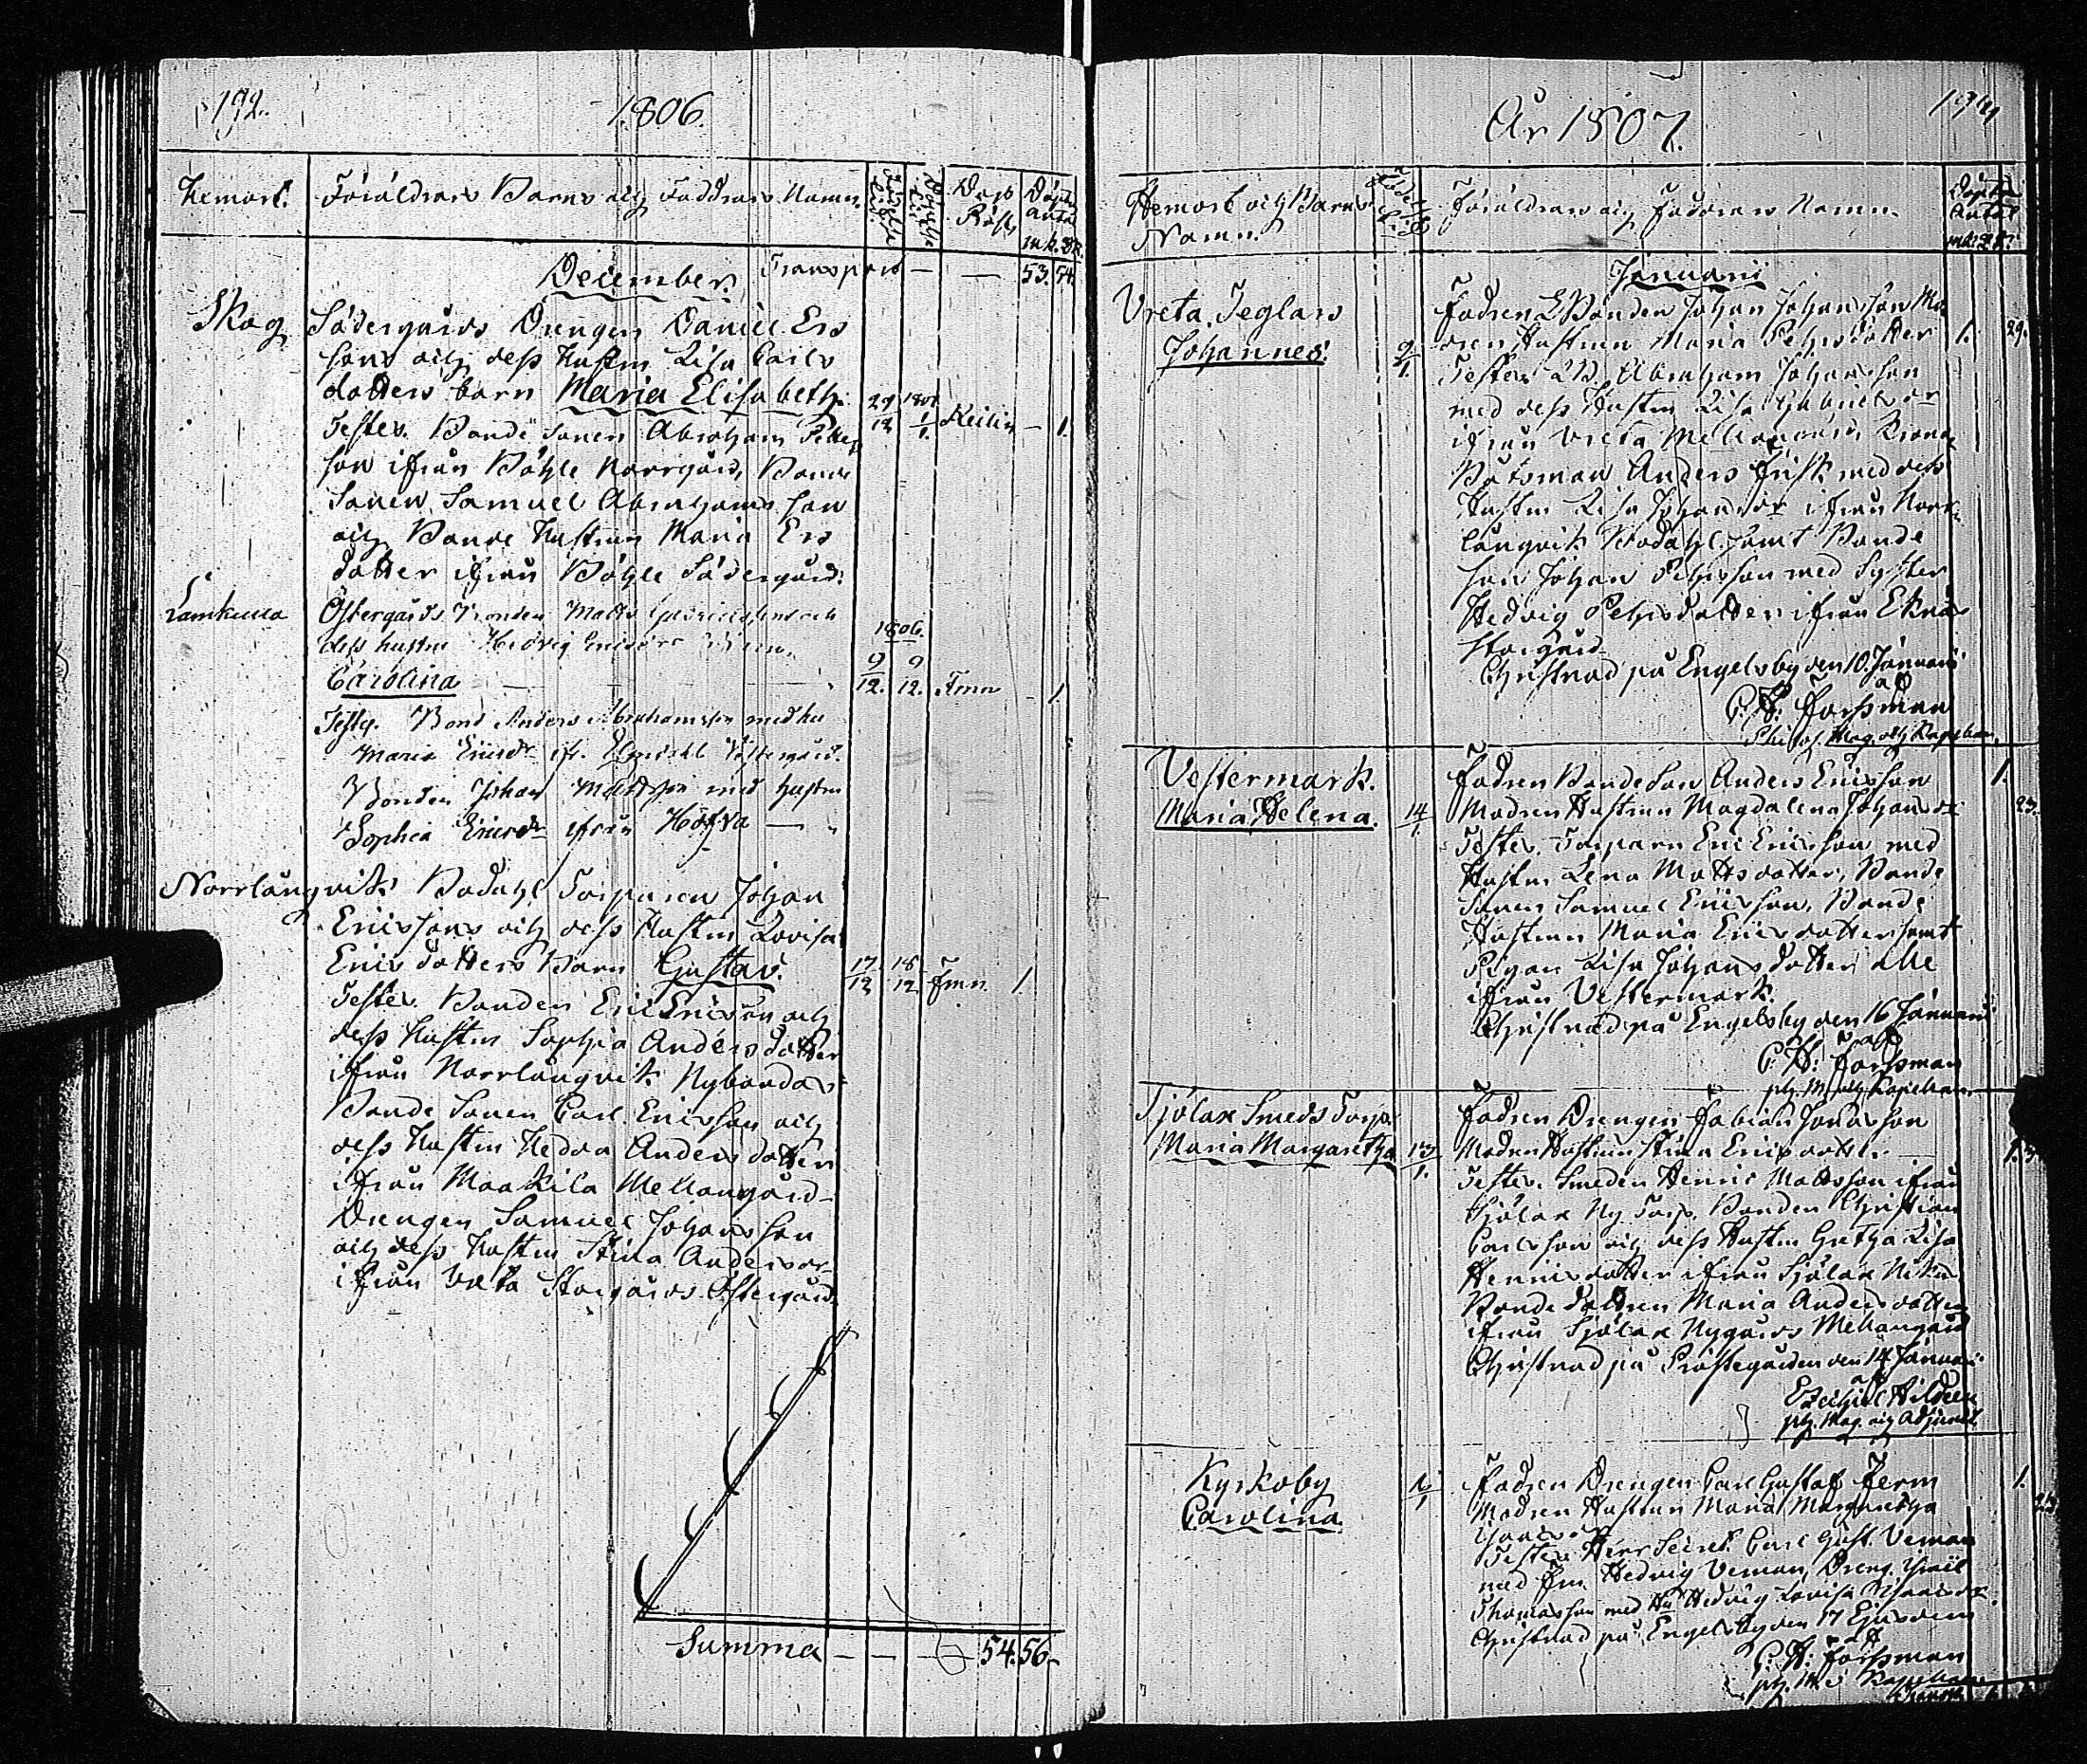 192.
1806.
Hemort.
Föräldrars Barns och Faddrars Namn.
Döpte
Antal
mk. qk.
December. Transport — — 53. 54.
Skog
Södergårds Drengen Daniel Ers
sons och dess Hustru Lisa Carls
dotters barn Maria Elisabeth.
27/12 1/1. Keilin — 1.
Testes. Bonde Sonen Abraham Petters
son ifrån Böhle Norrgård, Bonde
Sonen Samuel Abrahamsson
och Bonde Hustrun Maria Ers
dotter ifrån Böhle Södergård.
Lamkulla
Östergårds Bonden Matts
dess hustru Hedvig
1806.
Carolina — 9/12. 9/12. Fmn — 1.
Testes. Bond Anders Abrahamsson med hu
Maria Ericsdr ifr. Västergård.
Bonden Johan Mattsson med hustru
Sophia Ericsdr ifrån Höfva —
Norrlångvik
Bodahl Torparen Johan
Ericssons och dess Hustru Lovisa
Erics dotters Barn Gustav.
17/12 18/12 Fmn. 1.
Testes. Bonden Eric Ericsson och
dess Hustru Sophia Andersdotter
ifrån Norrlångvik Nybondas
Bonde Sonen Carl Ericsson och
dess Hustru Hedda Andersdotter
ifrån Maakila Mellangård
Drengen Samuel Johansson
och dess Hustru Stina Andersdr
ifrån Vreta Storgårds Östergård.
Summa — — — 54. 56.
År 1807.
Hemort och Barns
Namn.
Föräldrars och Faddrars Namn.
Döptes
Antal
mk. qk.
Januarii
Vreta. Teglars
Johannes.
Fadren Bonden Johan Johansson Mo
dren Hustrun Maria Pehrsdotter 1. 29.
Testes Abraham Johansson
med dess Hustru Lisa Gabrielsdr
ifrån Vreta Mellangård, Krono
Båtsman Anders Frisk med dess
Hustru Lisa Johansdr ifrån Norr
långvik Bodahl. samt Bonde
son Johan Pehrsson med Syster
Hedvig Pehrsdotter ifrån Eknäs
Storgård
Christnad på Engelsby den 10. Januarii
af
P. H: Forssman
Philos. Mag. och Kapellan.
Vestermark.
Maria Helena.
14/1.
Fadren Bondeson Anders Ericsson 1.
Modren Hustrun Magdalena Johansdr 23.
Testes. Torparn Eric Ericsson med
Hustru Lena Mattsdotter, Bonde
Sonen Samuel Ericsson, Bonde
Hustrun Maria Ericsdotter samt
Pigan Lisa Johansdotter alle
ifrån Vestermark.
Christnad på Engelsby den 16 Januarii
af
P. H: Forssman
ph. M. och Kapellan.
Tjölax Smeds Torp
Maria Margaretha
13/1.
Fadren Drengen Fabian Jonasson
Modren Hustrun Stina Ericsdotter 1.
Testes. Smeden Henric Mattsson ifrån
Tjölax Ny Torp, Bonden Christian
Carlsson och dess Hustru Gretha Lisa
Henricsdotter ifrån Tjölax
Bonde dottren Maria Andersdotter
ifrån Tjölax Nygårds Mellangård
Christnad på Prästegården den 14 Januarii
af
Ezechiel Hildeen
ph. Mag. och Adjunct.
Kyrkoby
Carolina.
Fadren Drengen Carl Gustaf Ferm 1.
Modren Hustrun Maria Margaretha
Testes Herr Secret. Carl Gust. Veman
med Fru Hedvig Veman, Dreng. Israël
Thomasson med Hu Hedvig Lovisa
Christnad på Engelsby den 17 Ejusdem
af
P. H: Forssman
ph. M: & Kapellan